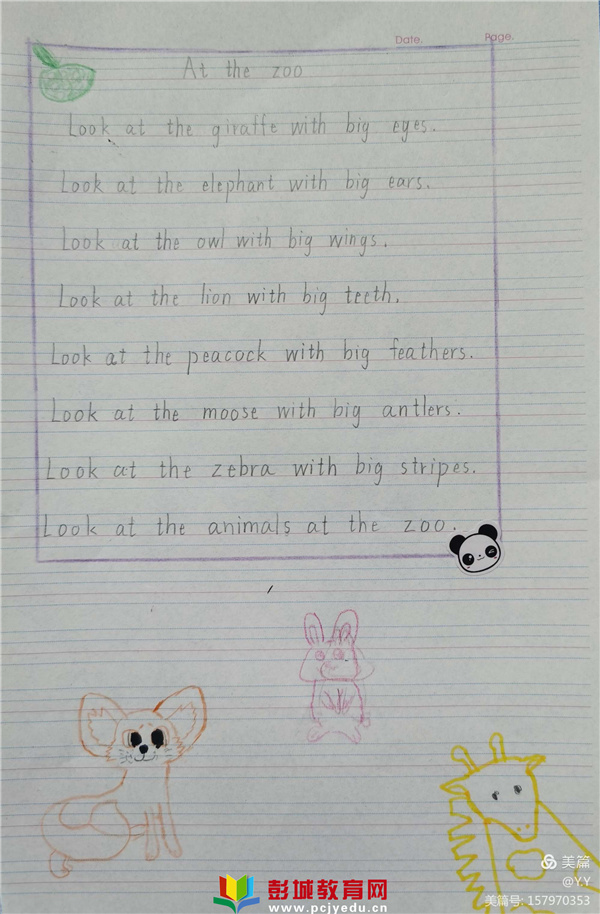 Date. Page.
At the zoo
Look at the giraffe with big eyes.
Look at the elephant with big ears.
Look at the owl with big wings.
Look at the lion with big teeth.
Look at the peacock with big feathers.
Look at the moose with big antlers.
Look at the zebra with big stripes.
Look at the animals at the zoo.
美篇
@Y.Y
美篇号: 157970353
彭城教育网
www.pcjyedu.cn